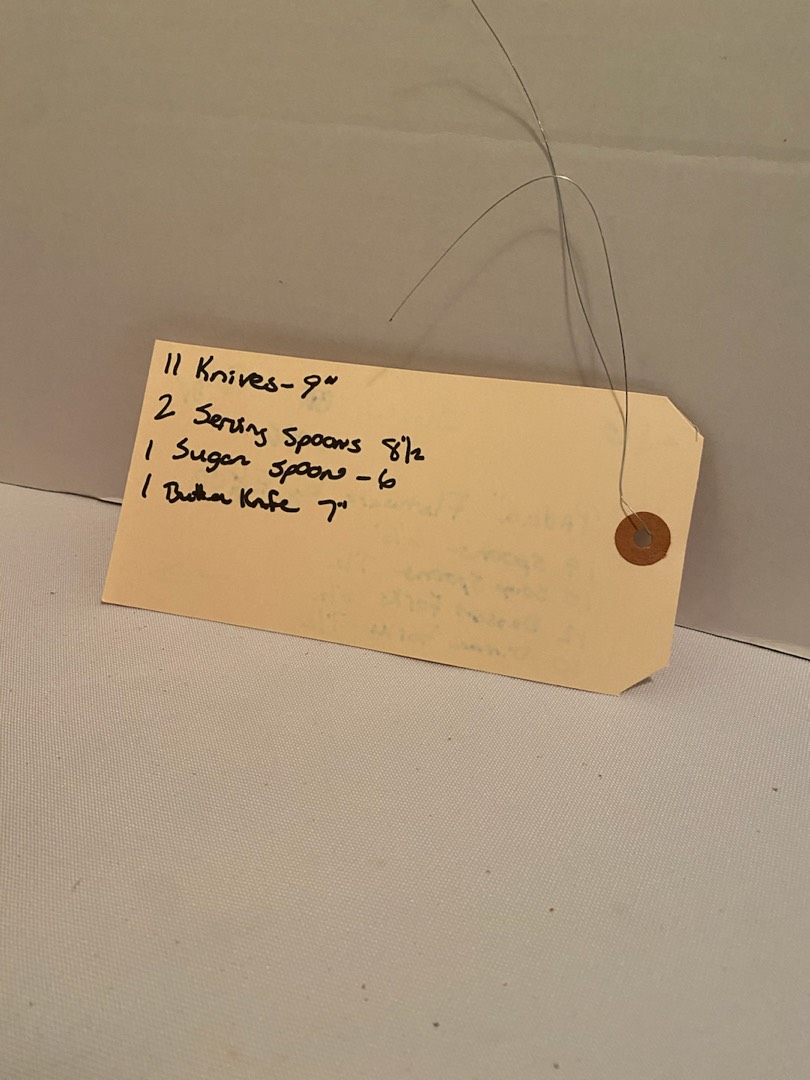 11 Knives - 9"
2 Serving Spoons 8 1/2"
1 Sugar Spoon - 6
1 Butter Knife 7"